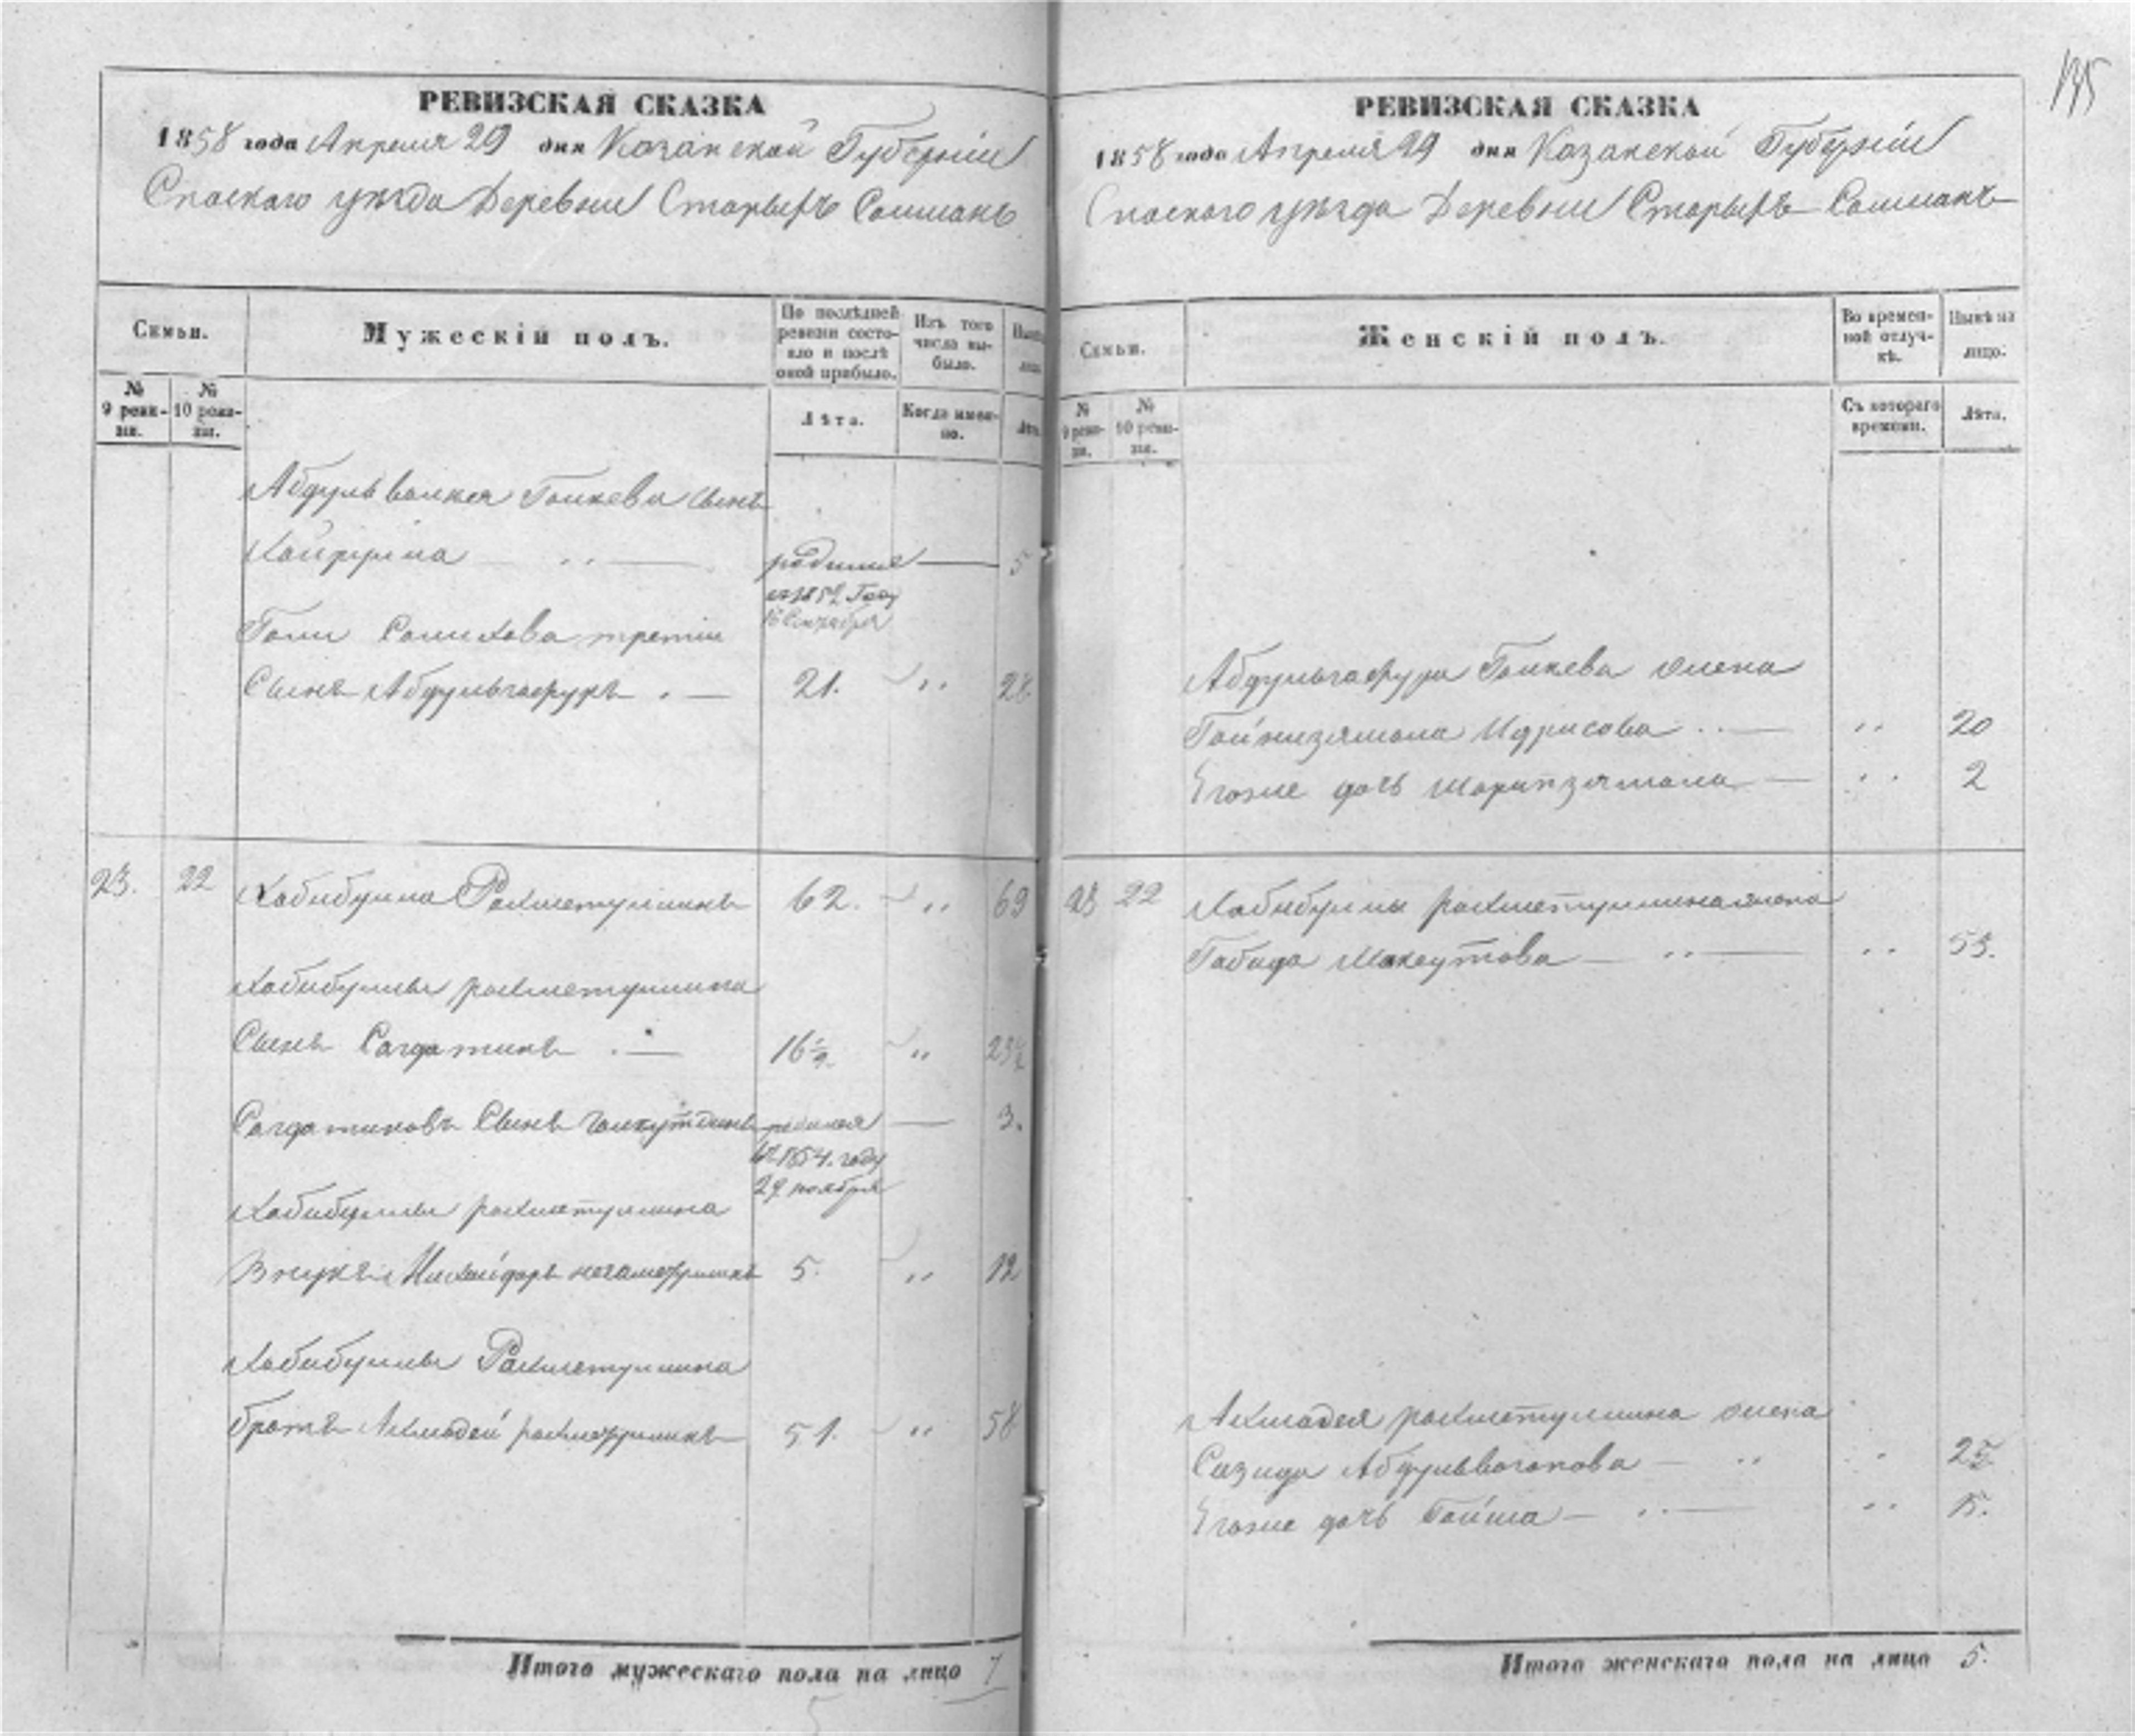 145
РЕВИЗСКАЯ СКАЗКА
1858 года Апреля 29 дня Казанской Губернии
Спаского уезда Деревни Старыхъ Салманъ
Семьи.
Мужескій полъ.
По послѣдней ревизіи состояло и послѣ оной прибыло.
Изъ того числа выбыло.
№ 9 ревизіи.
№ 10 ревизіи.
Лѣта.
Когда именно.
Абдульвалея Галеева сынъ
Хайрулла родился 5
въ 1852 Году
16 Сентября
Гали Салихова третій
Сынъ Абдульгафуръ 21. 28
23. 22 Хабибулла Рахметуллинъ 62. 69
Хабибуллы рахметуллина
Сынъ Сагдатинъ 16 ½ 23 ½
Сагдатиновъ Сынъ родился 3.
въ 1854. году
29 ноября
Хабибуллы рахметуллина
Внукъ 5. 12
Хабибуллы Рахметуллина
братъ Ахмадей рахметуллинъ 51. 58
Итого мужескаго пола на лицо 7
РЕВИЗСКАЯ СКАЗКА
1858 года Апреля 29 дня Казанской Губерніи
Спаского уезда Деревни Старыхъ Салманъ
Семьи.
Женскій полъ.
Во временной отлучкѣ.
Нынѣ на лицо.
№ 9 ревизіи.
№ 10 ревизіи.
Съ котораго времени.
Лѣта.
Абдульгафура Галеева жена
Гайнизямала Идрисова 20
Егоже дочь Шарипзямала 2
23 22 Хабибуллы рахметуллина жена
Габида Максутова 55.
Ахмадея рахметуллина жена
Сазида Абдулвагапова 25
Егоже дочь Гайша 15.
Итого женскаго пола на лицо 5.